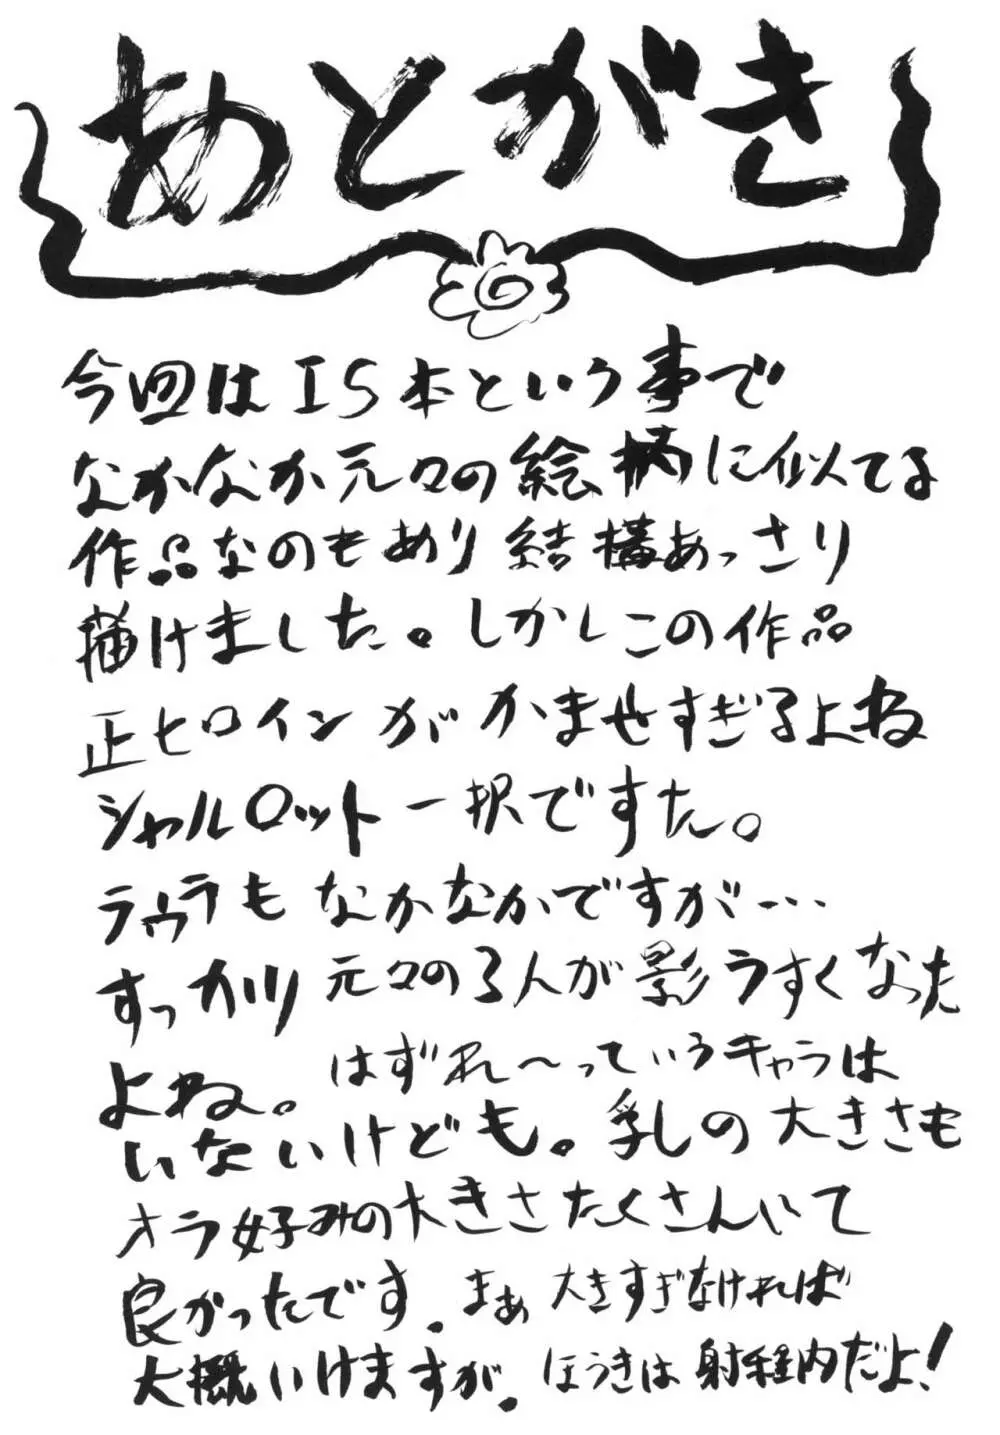 あとがき
今回はIS本という事で
なかなか元々の絵柄に似てる
作品なのもあり結構あっさり
描けました。しかしこの作品
正ヒロインがかませすぎるよね
シャルロット一択ですた。
ラウラもなかなかですが…
すっかり元々の3人が影うすくなった
よね。はずれ〜っていうキャラは
いないけども。乳の大きさも
オラ好みの大きさたくさんいて
良かったです。まぁ大きすぎなければ
大概いけますが。ほうきは射程内だよ!